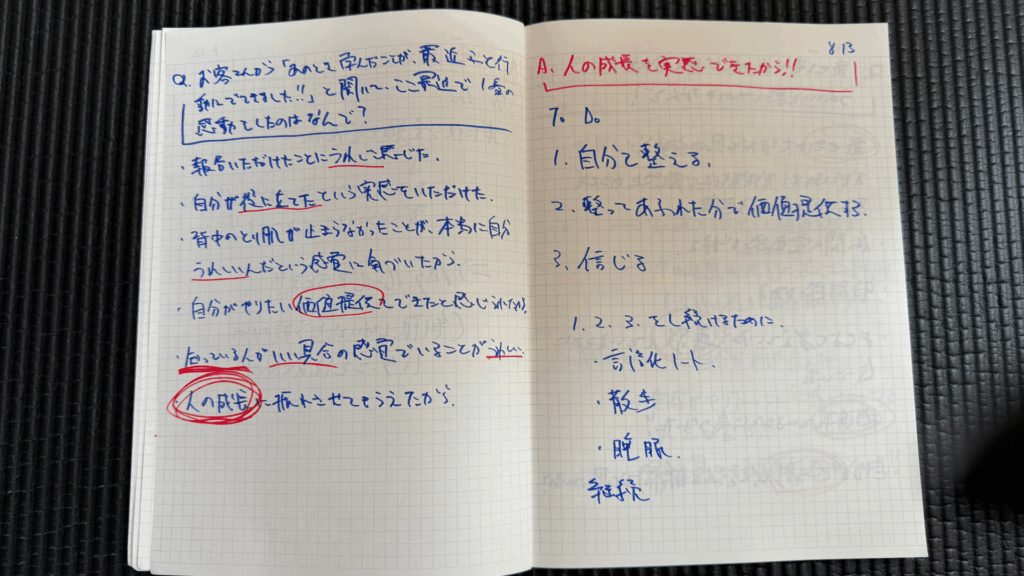 Q. お客さんから「あのとき学んだことが、最近やっと行
動にできました!!」と聞いて、ここ最近で1番の
感動をしたのはなんで?
・報告いただけたことにうれしさ感じた。
・自分が役に立てたという実感をいただけた。
・背中のとり肌が止まらなかったことが、本当に自分
うれしいんだという感覚に気づいたから。
・自分がやりたい価値提供をできたと感じられたから。
・知っている人がいい具合の感覚でいることがうれしい。
・人の成長に携わさせてもらえたから。
8 13
A. 人の成長を実感できたから!!
To Do
1. 自分を整える.
2. 整ってあふれた分で価値提供する.
3. 信じる
1. 2. 3. をし続けるために.
・言語化ノート.
・散歩
・睡眠.
継続